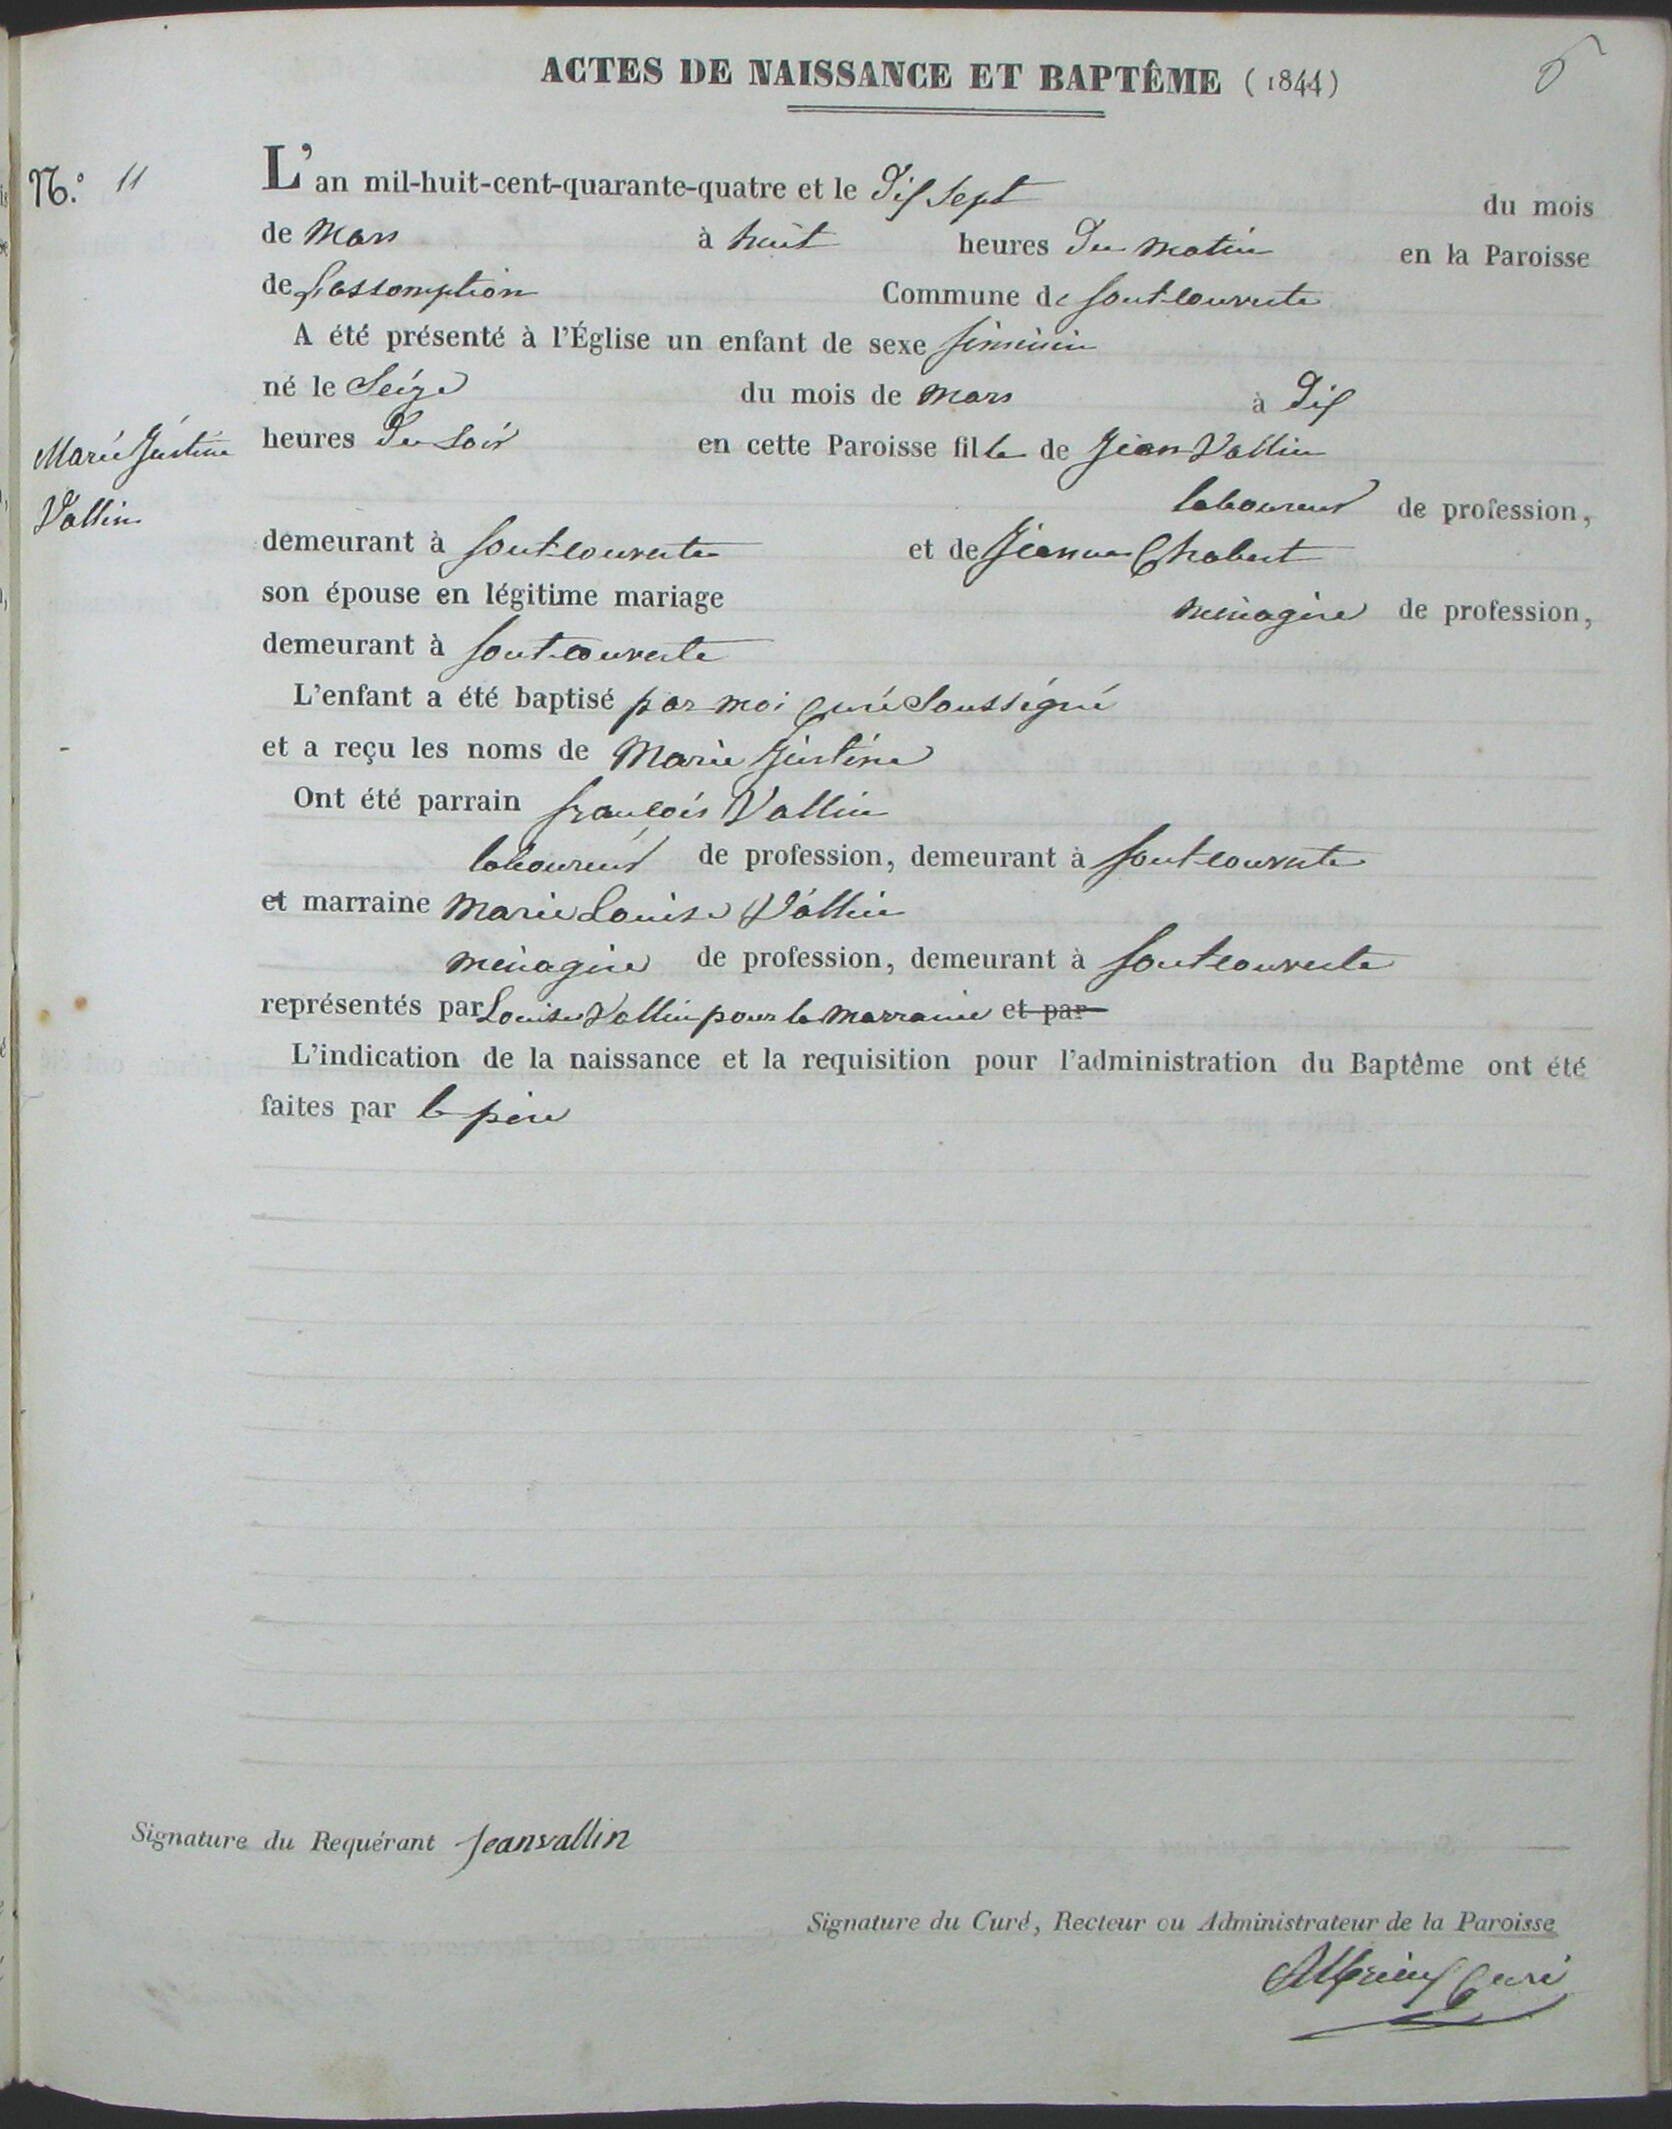 ACTES DE NAISSANCE ET BAPTÊME (1844)
N.° 11
L'an mil-huit-cent-quarante-quatre et le Dix Sept du mois
de Mars à huit heures Du matin en la Paroisse
de L'assomption Commune de fontcouverte
A été présenté à l'Église un enfant de sexe féminin
né le Seize du mois de mars à Dix
heures Du Soir en cette Paroisse fille de Jean Vallin
Marie Justine
Vallin
laboureur de profession,
demeurant à fontcouverte et de Jeanne Chabert
son épouse en légitime mariage ménagère de profession,
demeurant à fontcouverte
L'enfant a été baptisé par moi curé Soussigné
et a reçu les noms de Marie Justine
Ont été parrain françois Vallin
laboureur de profession, demeurant à fontcouverte
et marraine Marie Louise Vallin
ménagère de profession, demeurant à fontcouverte
représentés par Louise Vallin pour la marraine et par
L'indication de la naissance et la requisition pour l'administration du Baptême ont été
faites par le père
Signature du Requérant Jeanvallin
Signature du Curé, Recteur ou Administrateur de la Paroisse
curé